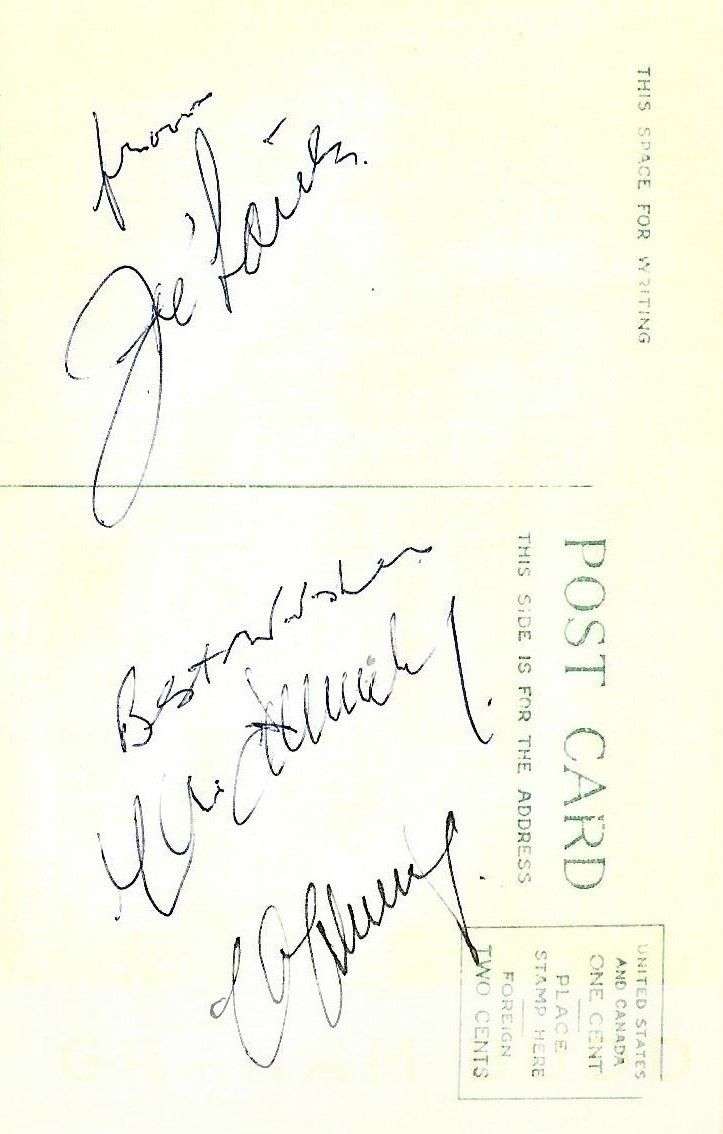 THIS SPACE FOR WRITING
from
Joe
POST CARD
THIS SIDE IS FOR THE ADDRESS
Best Wishes
UNITED STATES
AND CANADA
ONE CENT
PLACE
STAMP HERE
FOREIGN
TWO CENTS